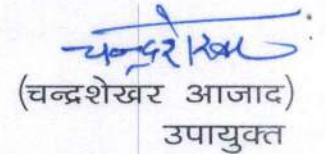 चन्द्रशेखर
(चन्द्रशेखर आजाद)
उपायुक्त